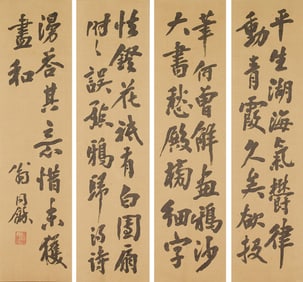 平生湖海氣鬱律
動青霞久矣投
華何曾解畫鴉沙
大書愁殿榜細字
怯鐙花祗有白團扇
時〻誤點鴉歸得詩
漫荅其意惜未獲
盡和
翁同龢